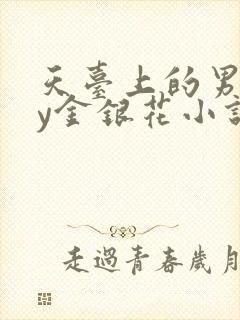 天臺上的男
y金銀花小
走過青春歲月